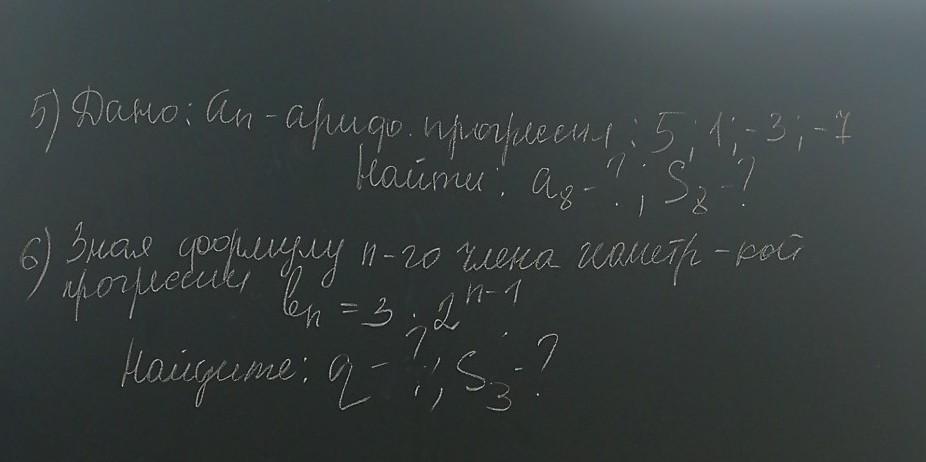 5) Дано: an - арифо. прогрессия: 5; 1; -3; -7
Найти: a8 - ?; S8 - ?
6) Зная формулу n-го члена геометр-кой
прогрессии
bn = 3 · 2^n-1
Найдите: q - ?; S3 - ?